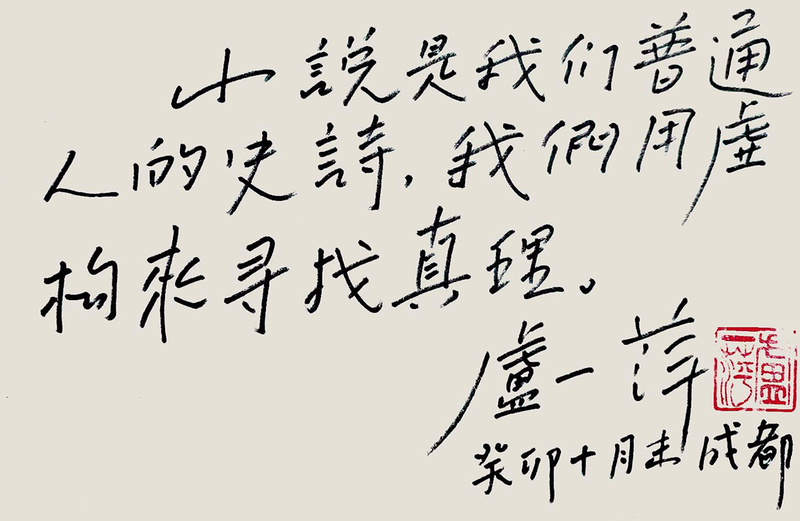 小說是我们普通
人的史詩，我們用虛
构來寻找真理。
盧一萍
癸卯十月末成都
盧一萍